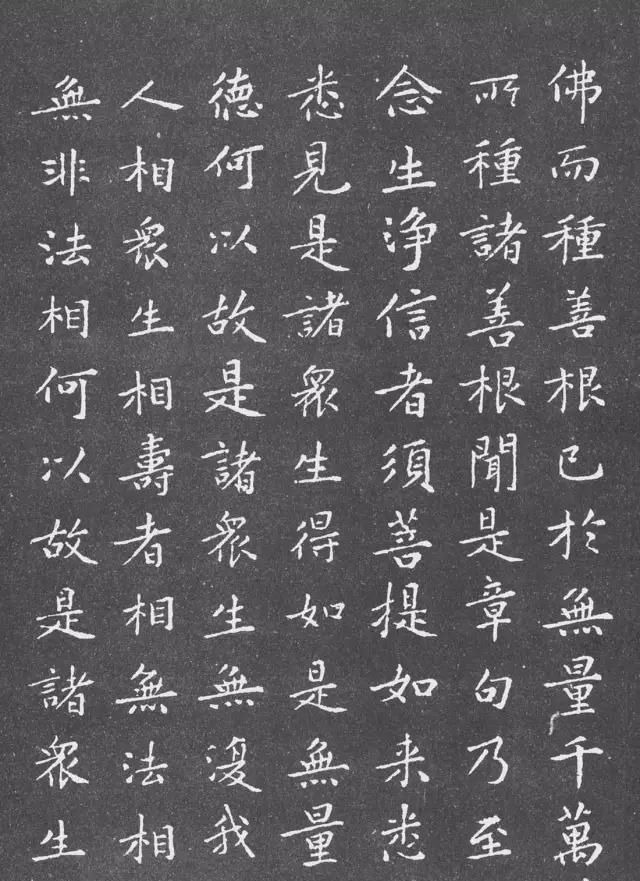 佛而種善根已於無量千萬
所種諸善根聞是章句乃至
念生淨信者須菩提如来悉
悉見是諸眾生得如是無量
德何以故是諸眾生無復我
人相眾生相壽者相無法相
無非法相何以故是諸眾生